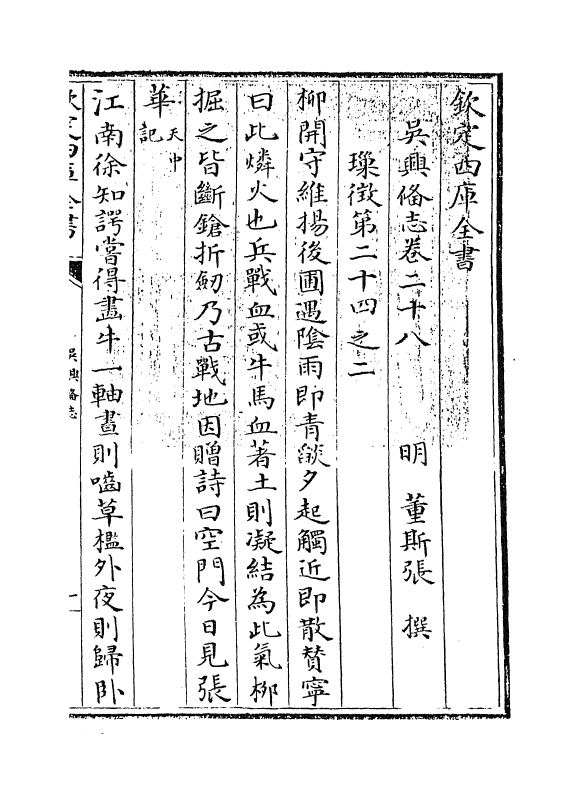 欽定四庫全書
吳興備志卷二十八 明 董斯張 撰
璅徴第二十四之二
柳開守維揚後圃遇陰雨即青燄夕起觸近即散賛寧
曰此燐火也兵戰血或牛馬血著土則凝結為此氣栁
掘之皆斷鎗折劒乃古戰地因贈詩曰空門今日見張
華天中記
江南徐知諤嘗得畫牛一軸晝則嚙草欄外夜則歸卧
欽定四庫全書
吳興備志
一